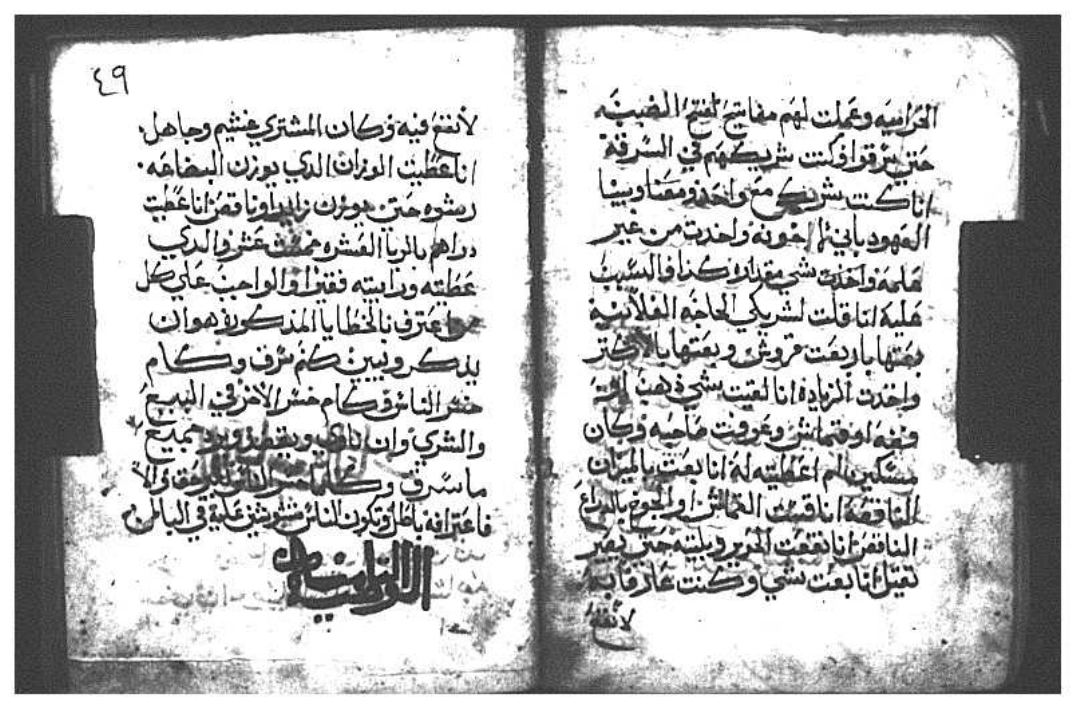 الحراميه وعملت لهم مفاتيح لفتح الضبب
حتي سرقوا وكنت شريكهم في السرقة
انا كنت شريك مع واحد ومضا وبيننا
العهود باني لا اخونه واخدت من غير
علمه واخدت شي مقداره كدا والسبب
عليه انا قلت لشريكي الحاجه الفلانيه
بعتها باربعت قروش وبعتها بالاكتر
واخدت الزياده انا لقيت شي ذهب او
فضه او قماش وعرفت صاحبه وكان
مسكين لم اعطيته له انا بعت بالميزان
الناقصه انا قست القماش والجوخ بالدراع
الناقص انا نقعت الحرير وبليته حتي يصير
تقيل انا بعت شي وكنت عارف
لا نفع
٤٩
لا نفع فيه وكان المشتري غشيم وجاهل
انا عطيت الوزان الدي يوزن البضاعه
رشوه حتي يوزن زايد او ناقص انا عطيت
دراهم بالربا العشره عشر والدي
عطيته ورابيته فقير والواجب علي كل
من اعترف بالخطايا المذكوره هو ان
يذكر ويبين كم سرف وكام
خسر الناس وكام خسر الاخر في البيع
والشري وان ويرد جميع
ما سرق وكلما خسر والا
فاعترافه باطل وتكون الناس عليه في الباطن